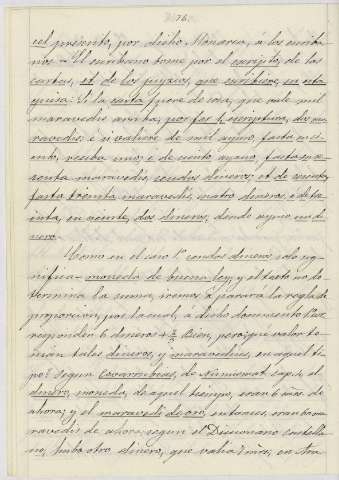 76.
el presente, por dicho Monarca, á los escriba
nos = El escribano tome por el escripto, de las
cartas, et de los juyzios, que escribiere, en esta
guisa: Si la carta fuere de cosa, que vale mil
maravedis arriba, por fer la escriptura, dos ma
ravedis: é si valiere de mil ayuso, fasta en ci
ento, reciba uno; é de ciento ayuso, fasta en
senta maravedis, dineros; et de
fasta treinta maravedis, cuatro dineros; é de tre
inta, en veinte, dos dineros, dende ayuso un di
nero.
Como en el caso 1º dineros solo sig
nifica = moneda de buena ley, y el texto no de
termina la suma, vemos á parará la regla de
proporcion, por la cual, á dicho documento
responden 6 dineros + Bien, pero, que valor te
nian tales dineros, y maravedises, en aquel ti
po? Segun Covarrubias, de Numismat. cap. el
dinero, moneda, de aquel tiempo, eran 6 mrs. de
ahora; y el maravedi de oro, entonces, eran ma
ravedis de ahora: segun el Diccionario Castella
no, hubo otro dinero, que valia 2 mrs; en Ara